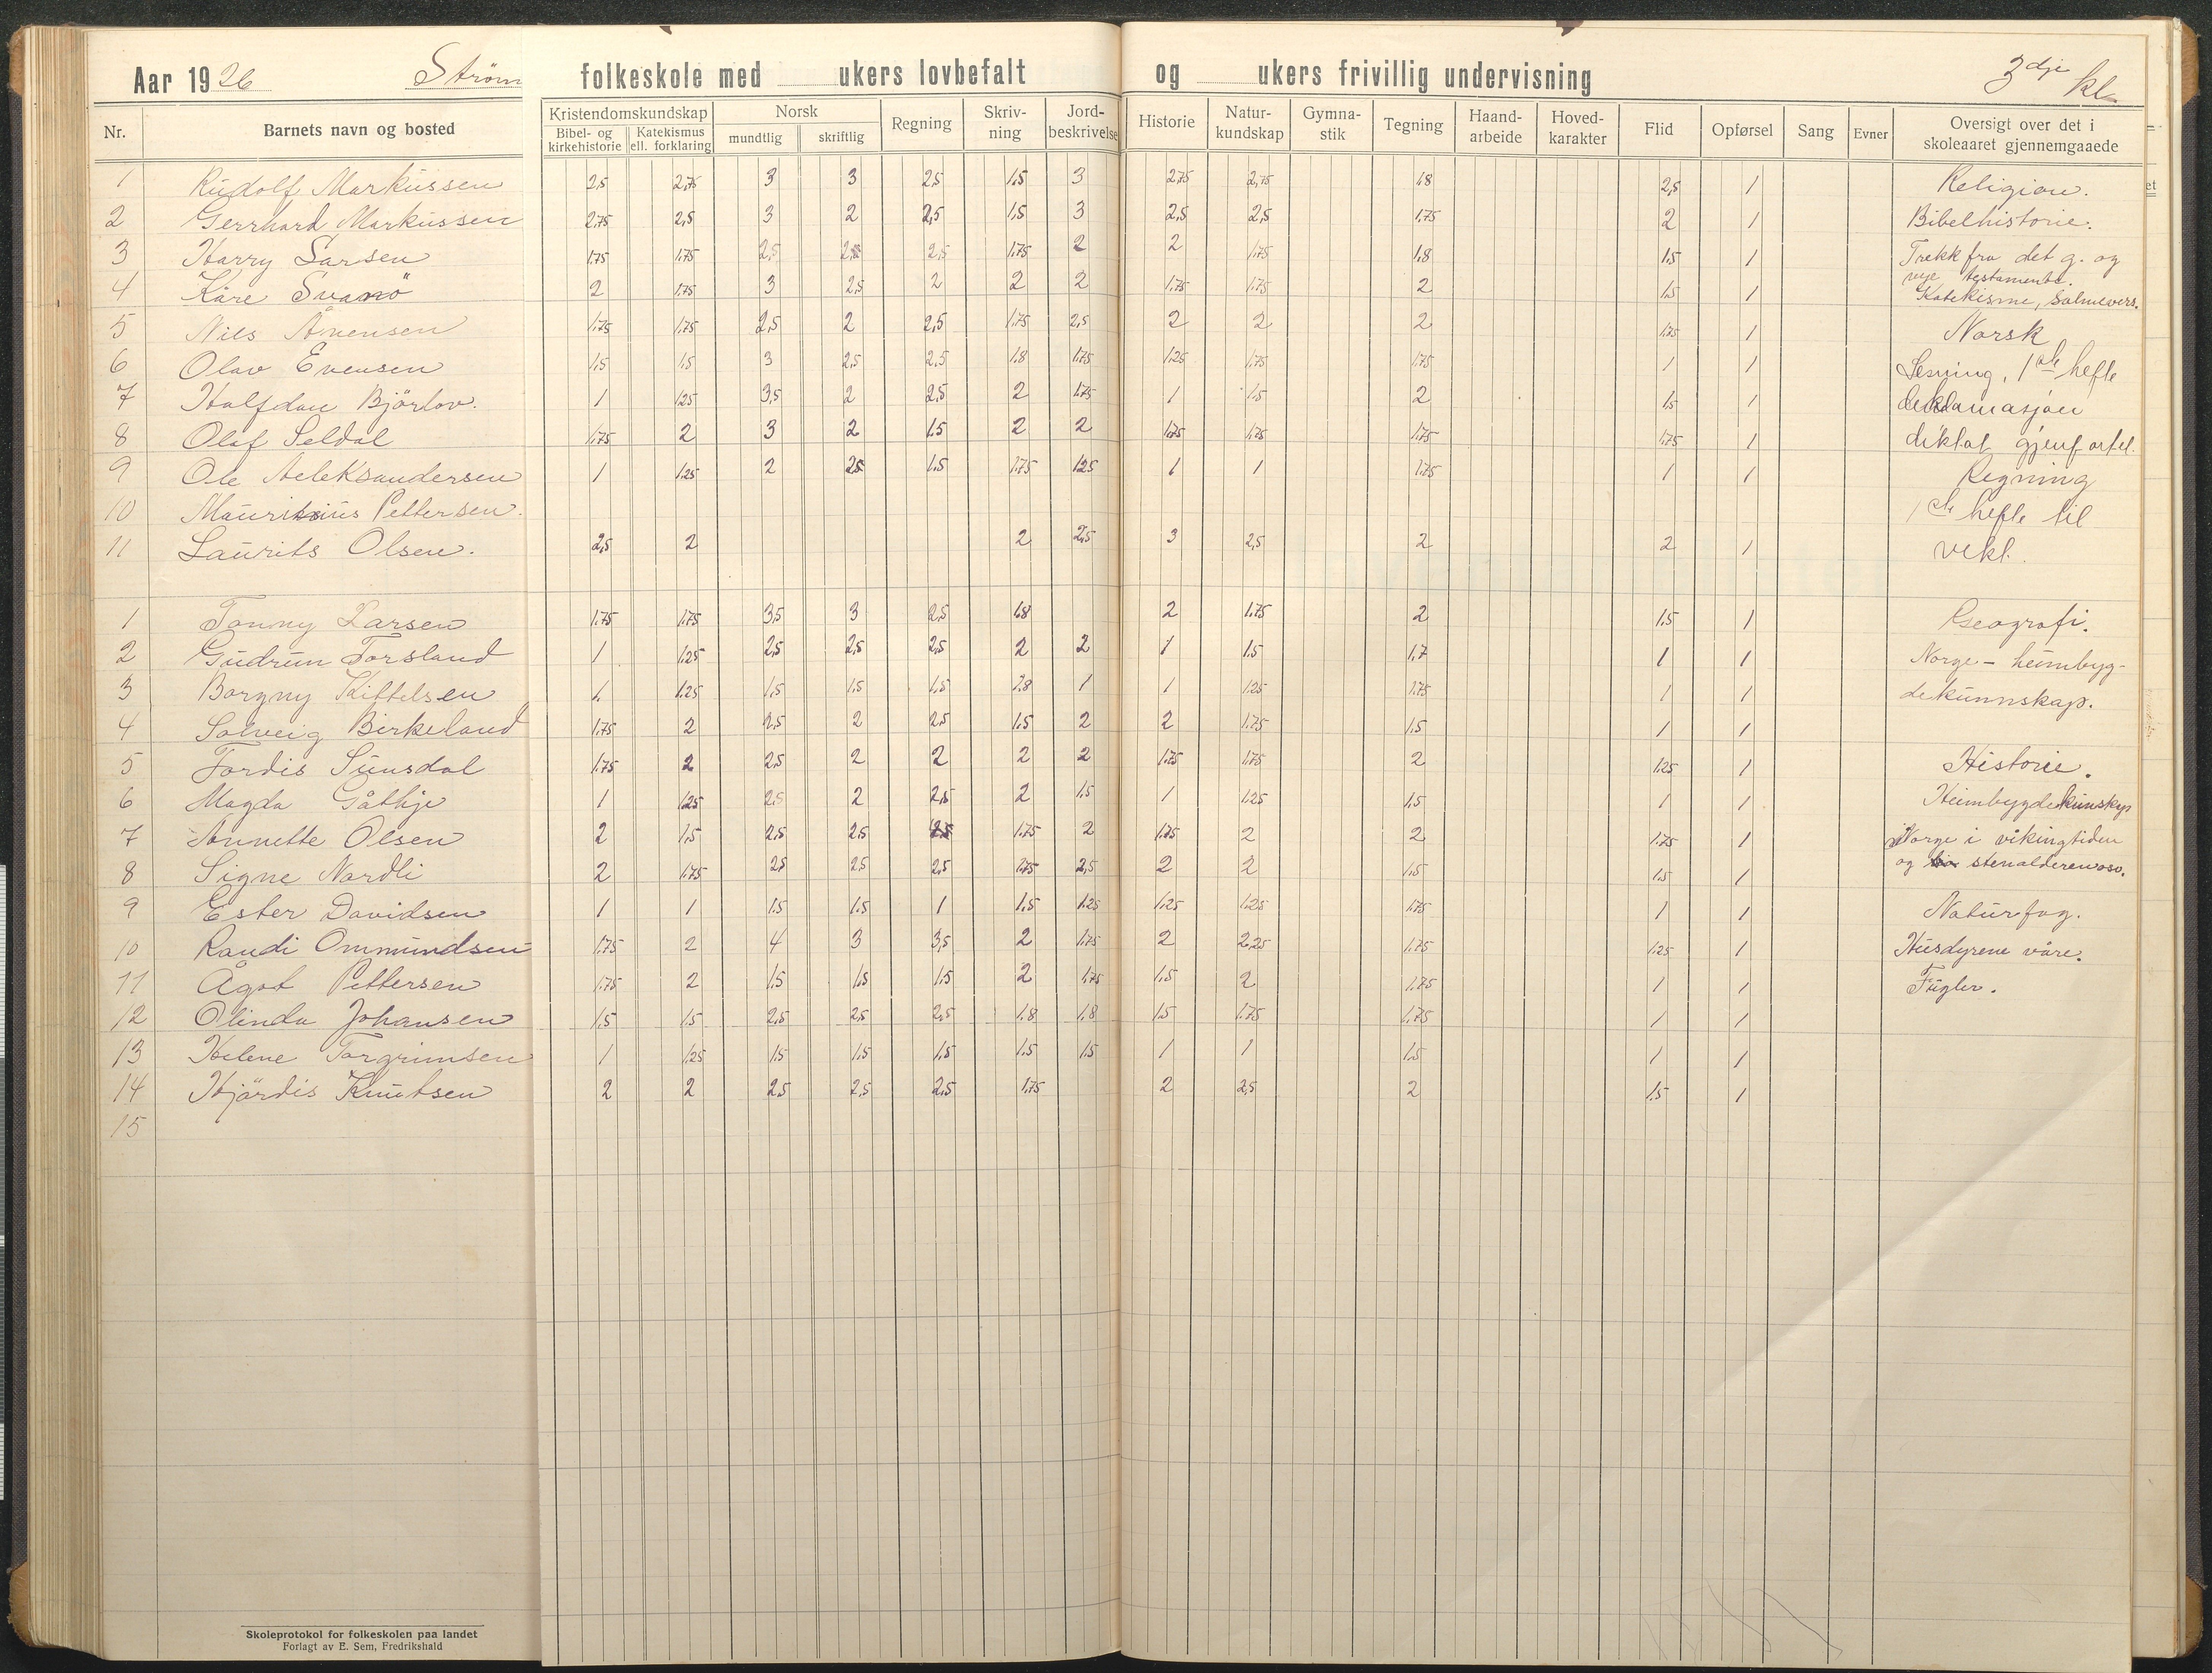 Aar 1926 Strøm folkeskole med ukers lovbefalt og ukers frivillig undervisning 3dje kl.
Nr. Barnets navn og bosted Kristendomskundskap Bibel- og kirkehistorie Katekismus ell. forklaring Norsk mundtlig skriftlig Regning Skriv-ning Jord-beskrivelse Historie Natur-kundskap Gymna-stik Tegning Haand-arbeide Hoved-karakter Flid Opførsel Sang Evner Oversigt over det i skoleaaret gjennemgaaede
1 Rudolf Markussen 2,5 2,75 3 3 2,5 1,5 3 2,75 2,75 1,8 2,5 1 Religion.
2 Gerrhard Markussen 2,75 2,5 3 2 2,5 1,5 3 2,5 2,5 1,75 2 1 Bibelhistorie.
3 Harry Larsen 1,75 1,75 2,5 2,5 1,75 2 2 1,75 1,8 1,5 1 Trekk fra det g. og
nye testamente.
4 Kåre Svanö 2 1,75 3 2,5 2 2 2 1,75 1,75 2 1,5 1 Katekisme, Salmevers.
5 Nils 1,75 1,75 2,5 2 2,5 1,75 2,5 2 2 2 1,75 1 Norsk
6 Olav Evensen 1,5 1,5 3 2,5 2,5 1,8 1,75 1,25 1,75 1,75 1 1 Lesning, 1ste hefte
7 Halfdan Bjørlov. 1 1,25 3,5 2 2,5 2 1,75 1 1,5 2 1,5 1 deklamasjon
8 Olaf Seldal 1,75 2 3 2 1,5 2 2 1,75 1,75 1,75 1,75 1 diktat gjenfortel.
9 Ole Aeleksandersen 1 1,25 2 2,5 1,5 1,75 1,25 1 1 1,75 1 1 Regning
10 Mauritsius Pettersen. 1ste hefte til
11 Laurits Olsen. 2,5 2 2 2,5 3 2,5 2 2 1 vekt.
1 Tonny Larsen 1,75 1,75 3,5 3 2,5 1,8 2 1,75 2 1,5 1 Geografi.
2 Gudrun Torsland 1 1,25 2,5 2,5 2,5 2 2 1 1,5 1,7 1 1 Norge - heimbyg-
3 Borgny Kittelsen 1 1,25 1,5 1,5 1,5 1,8 1 1 1,25 1,75 1 1 dekunnskap.
4 Solveig Birkeland 1,75 2 2,5 2 2,5 1,5 2 2 1,75 1,5 1 1
5 Tordis Sunsdal 1,75 2 2,5 2 2 2 2 1,75 1,75 2 1,25 1 Historie.
6 Magda Gåthje 1 1,25 2,5 2 2,5 2 1,5 1 1,25 1,5 1 1 Heimbygdekunskap
7 Annette Olsen 2 1,5 2,5 2,5 2,5 1,75 2 1,75 2 2 1,75 1 Norge i vikingtiden
8 Signe Nordli 2 1,75 2,5 2,5 2,5 1,75 2,5 2 2 1,5 1,5 1 og stenalderen oso.
9 Ester Davidsen 1 1 1,5 1,5 1 1,5 1,25 1,25 1,25 1,75 1 1 Naturfag.
10 Randi Ommundsen 1,75 2 4 3 3,5 2 1,75 2 2,25 1,75 1,25 1 Husdyrene våre.
11 Ågot Pettersen 1,75 2 1,5 1,5 1,5 2 1,75 1,5 2 1,75 1 1 Fugler.
12 Olinda Johansen 1,5 1,5 2,5 2,5 2,5 1,8 1,8 1,5 1,75 1,75 1 1
13 Helene Torgrimsen 1 1,25 1,5 1,5 1,5 1,5 1,5 1 1 1,5 1 1
14 Hjørdis Knutsen 2 2 2,5 2,5 2,5 1,75 2 2,5 2 1,5 1
15
Skoleprotokol for folkeskolen paa landet
Forlagt av E. Sem, Fredrikshald